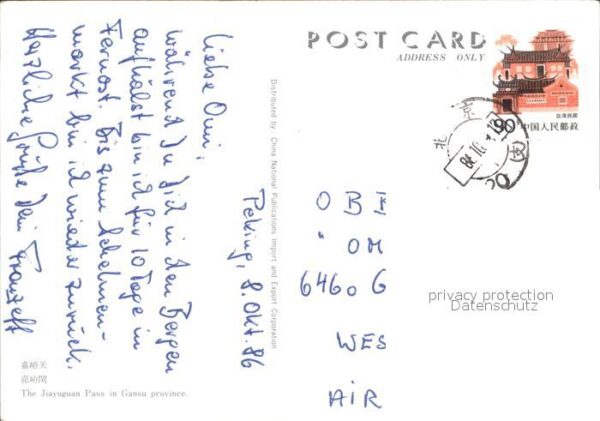 POST CARD
ADDRESS ONLY
Peking, 8. Okt. 86
Liebe Omi,
während Du Dich in den Bergen
aufhälst bin ich für 10 Tage in
Fernost. Bis zum Schelmen-
markt bin ich wieder zurück.
Herzliche Grüße Dein Franzeff
Distributed by China National Publications Import and Export Corporation
嘉峪关
嘉峪関
The Jiayuguan Pass in Gansu province.
台湾民居
90 中国人民邮政
北 京
OBE
" OM
6460 G
WES
AIR
privacy protection
Datenschutz